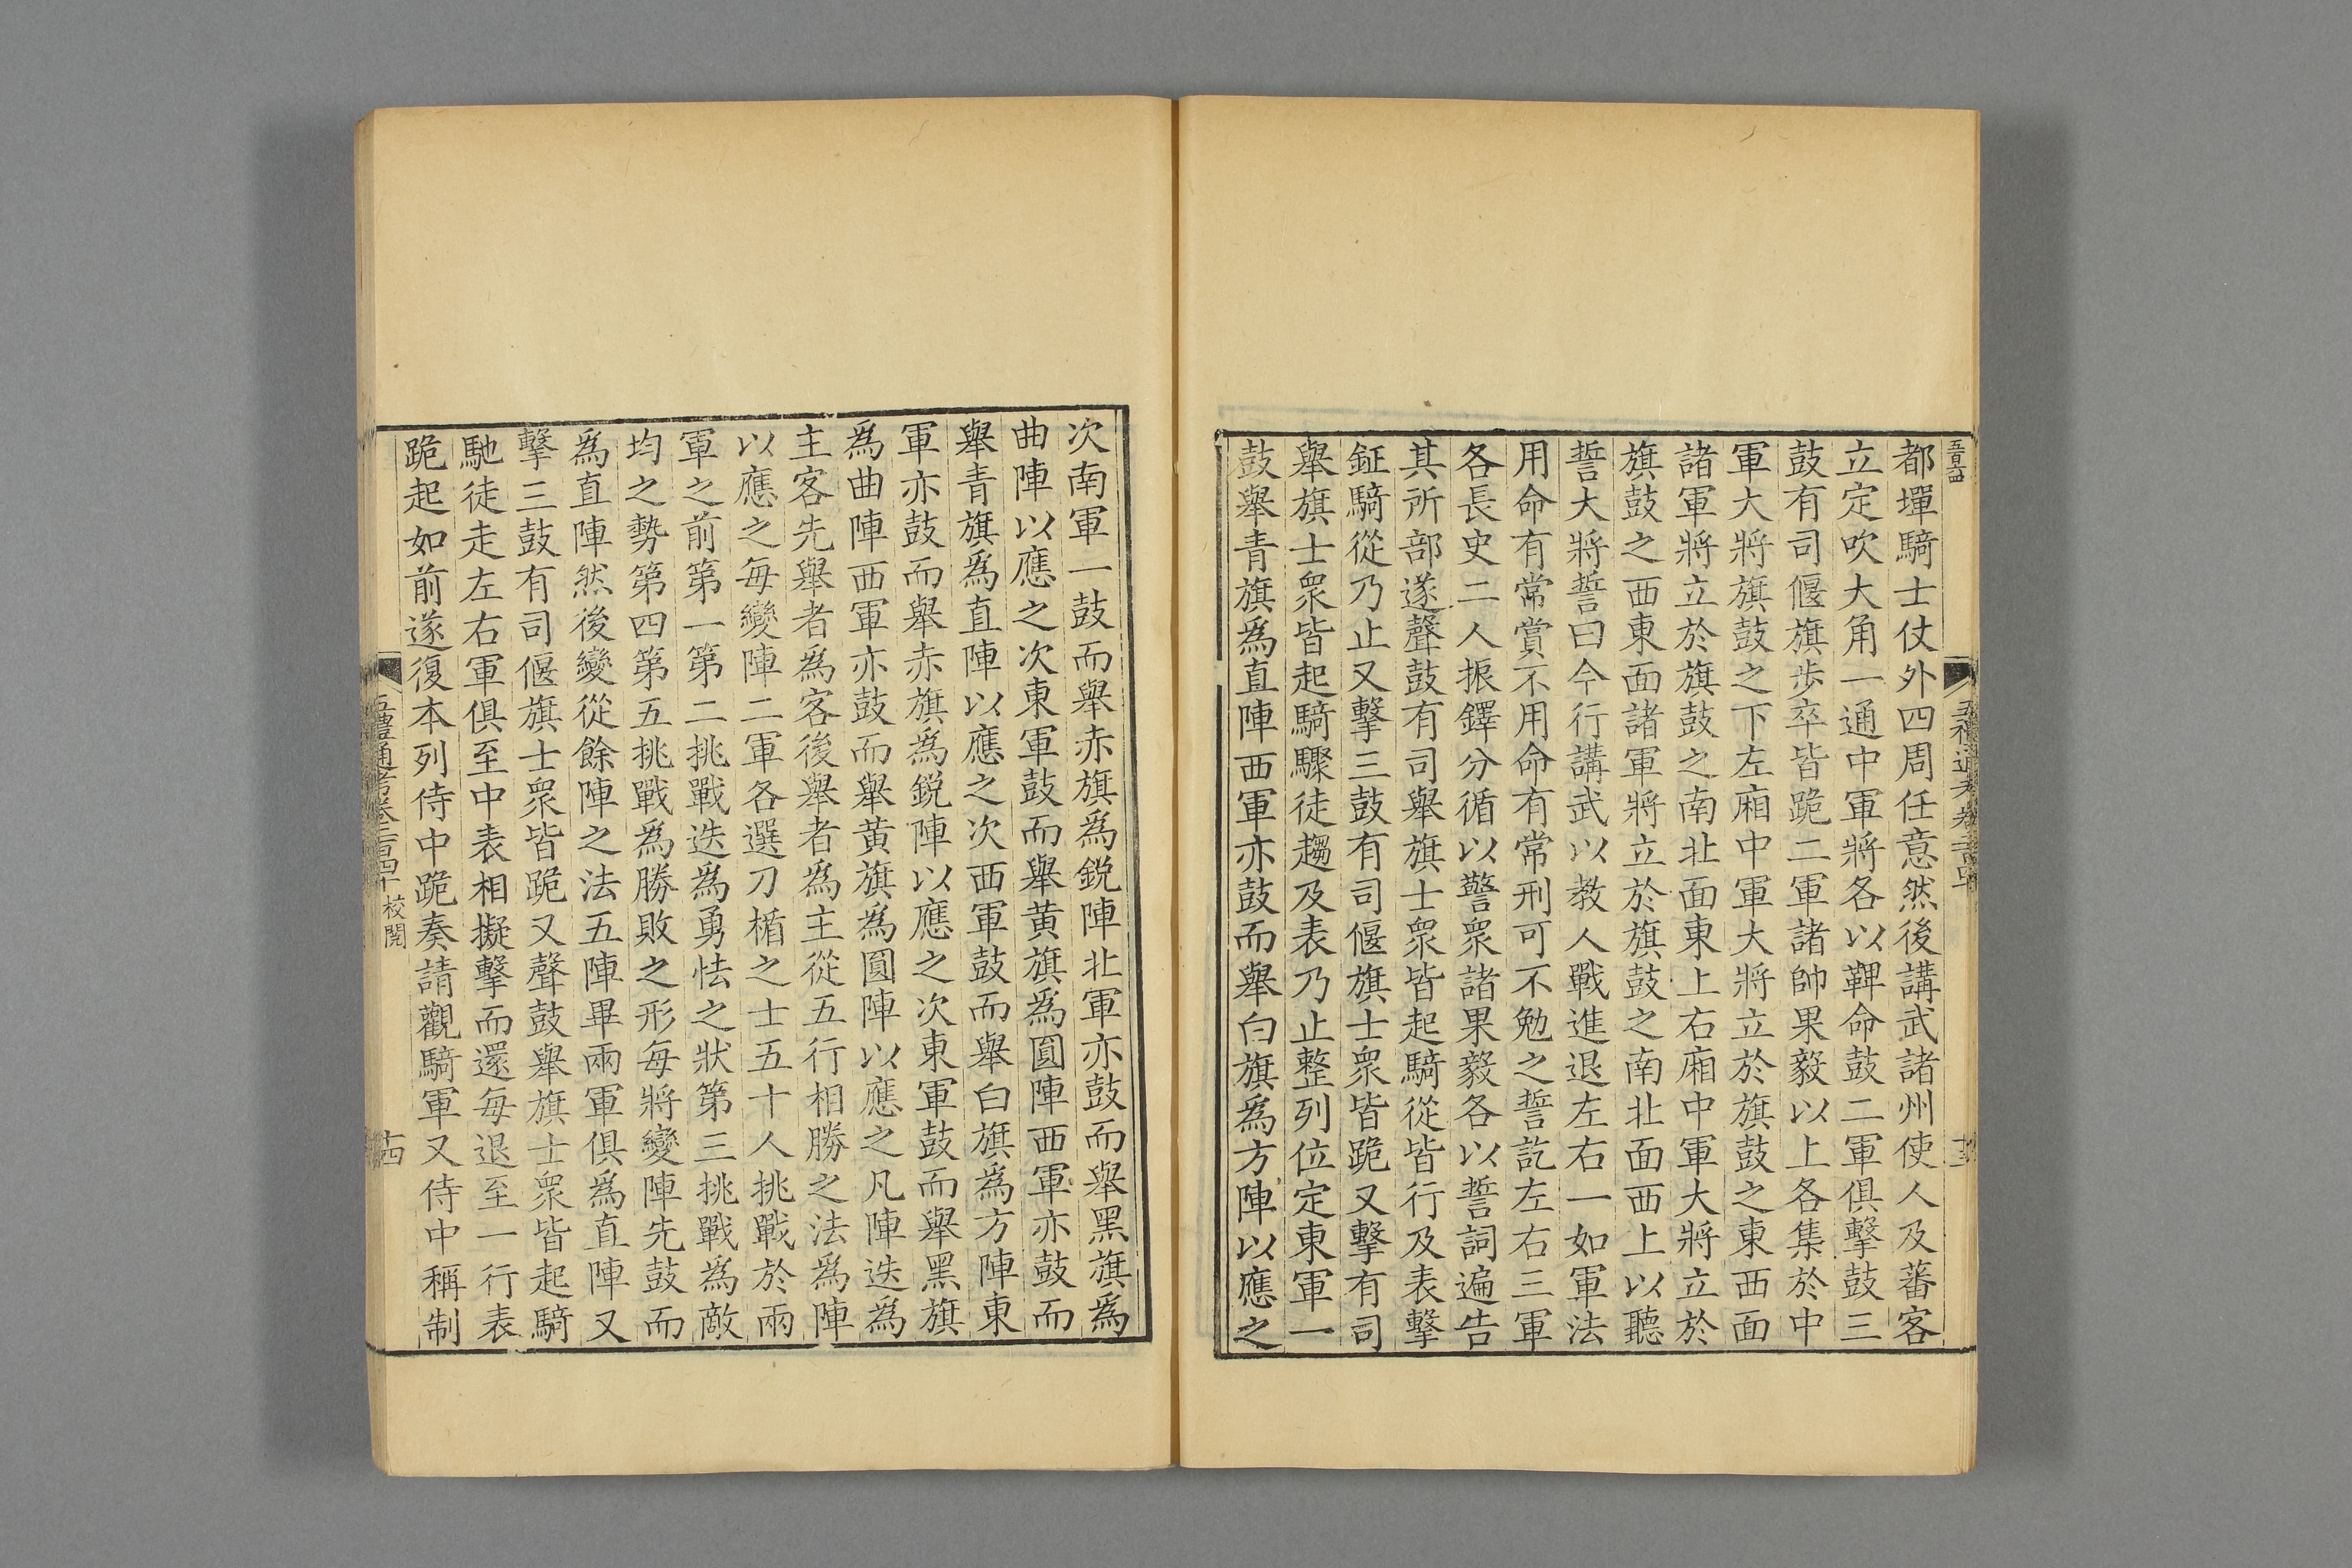 都墠騎士仗外四周任意然後講武諸州使人及蕃客
立定吹大角一通中軍將各以鞞命鼓二軍俱擊鼓三
鼓有司偃旗步卒皆跪二軍諸帥果毅以上各集於中
軍大將旗鼓之下左廂中軍大將立於旗鼓之東西面
諸軍將立於旗鼓之南北面東上右廂中軍大將立於
旗鼓之西東面諸軍將立於旗鼓之南北面西上以聽
誓大將誓曰今行講武以教人戰進退左右一如軍法
用命有常賞不用命有常刑可不勉之誓訖左右三軍
各長史二人振鐸分循以警衆諸果毅各以誓詞遍告
其所部遂聲鼓有司舉旗士衆皆起騎從皆行及表擊
鉦騎從乃止又擊三鼓有司偃旗士衆皆跪又擊有司
舉旗士衆皆起騎驟徒趨及表乃止整列位定東軍一
鼓舉青旗爲直陣西軍亦鼓而舉白旗爲方陣以應之
次南軍一鼓而舉赤旗爲鋭陣北軍亦鼓而舉黑旗爲
曲陣以應之次東軍鼓而舉黄旗爲圓陣西軍亦鼓而
舉青旗爲直陣以應之次西軍鼓而舉白旗爲方陣東
軍亦鼓而舉赤旗爲鋭陣以應之次東軍鼓而舉黑旗
爲曲陣西軍亦鼓而舉黄旗爲圓陣以應之凡陣迭爲
主客先舉者爲客後舉者爲主從五行相勝之法爲陣
以應之毎變陣二軍各選刀楯之士五十人挑戰於兩
軍之前第一第二挑戰迭爲勇怯之狀第三挑戰爲敵
均之勢第四第五挑戰爲勝敗之形每將變陣先鼓而
爲直陣然後變從餘陣之法五陣畢兩軍俱爲直陣又
擊三鼓有司偃旗士衆皆跪又聲鼓舉旗士衆皆起騎
馳徒走左右軍俱至中表相擬擊而還毎退至一行表
跪起如前遂復本列侍中跪奏請觀騎軍又侍中稱制
五禮通考卷二百四十 校閲 十四